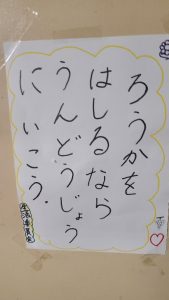 ろうかを
はしるなら
うんどうじょう
にいこう.
生活委員会